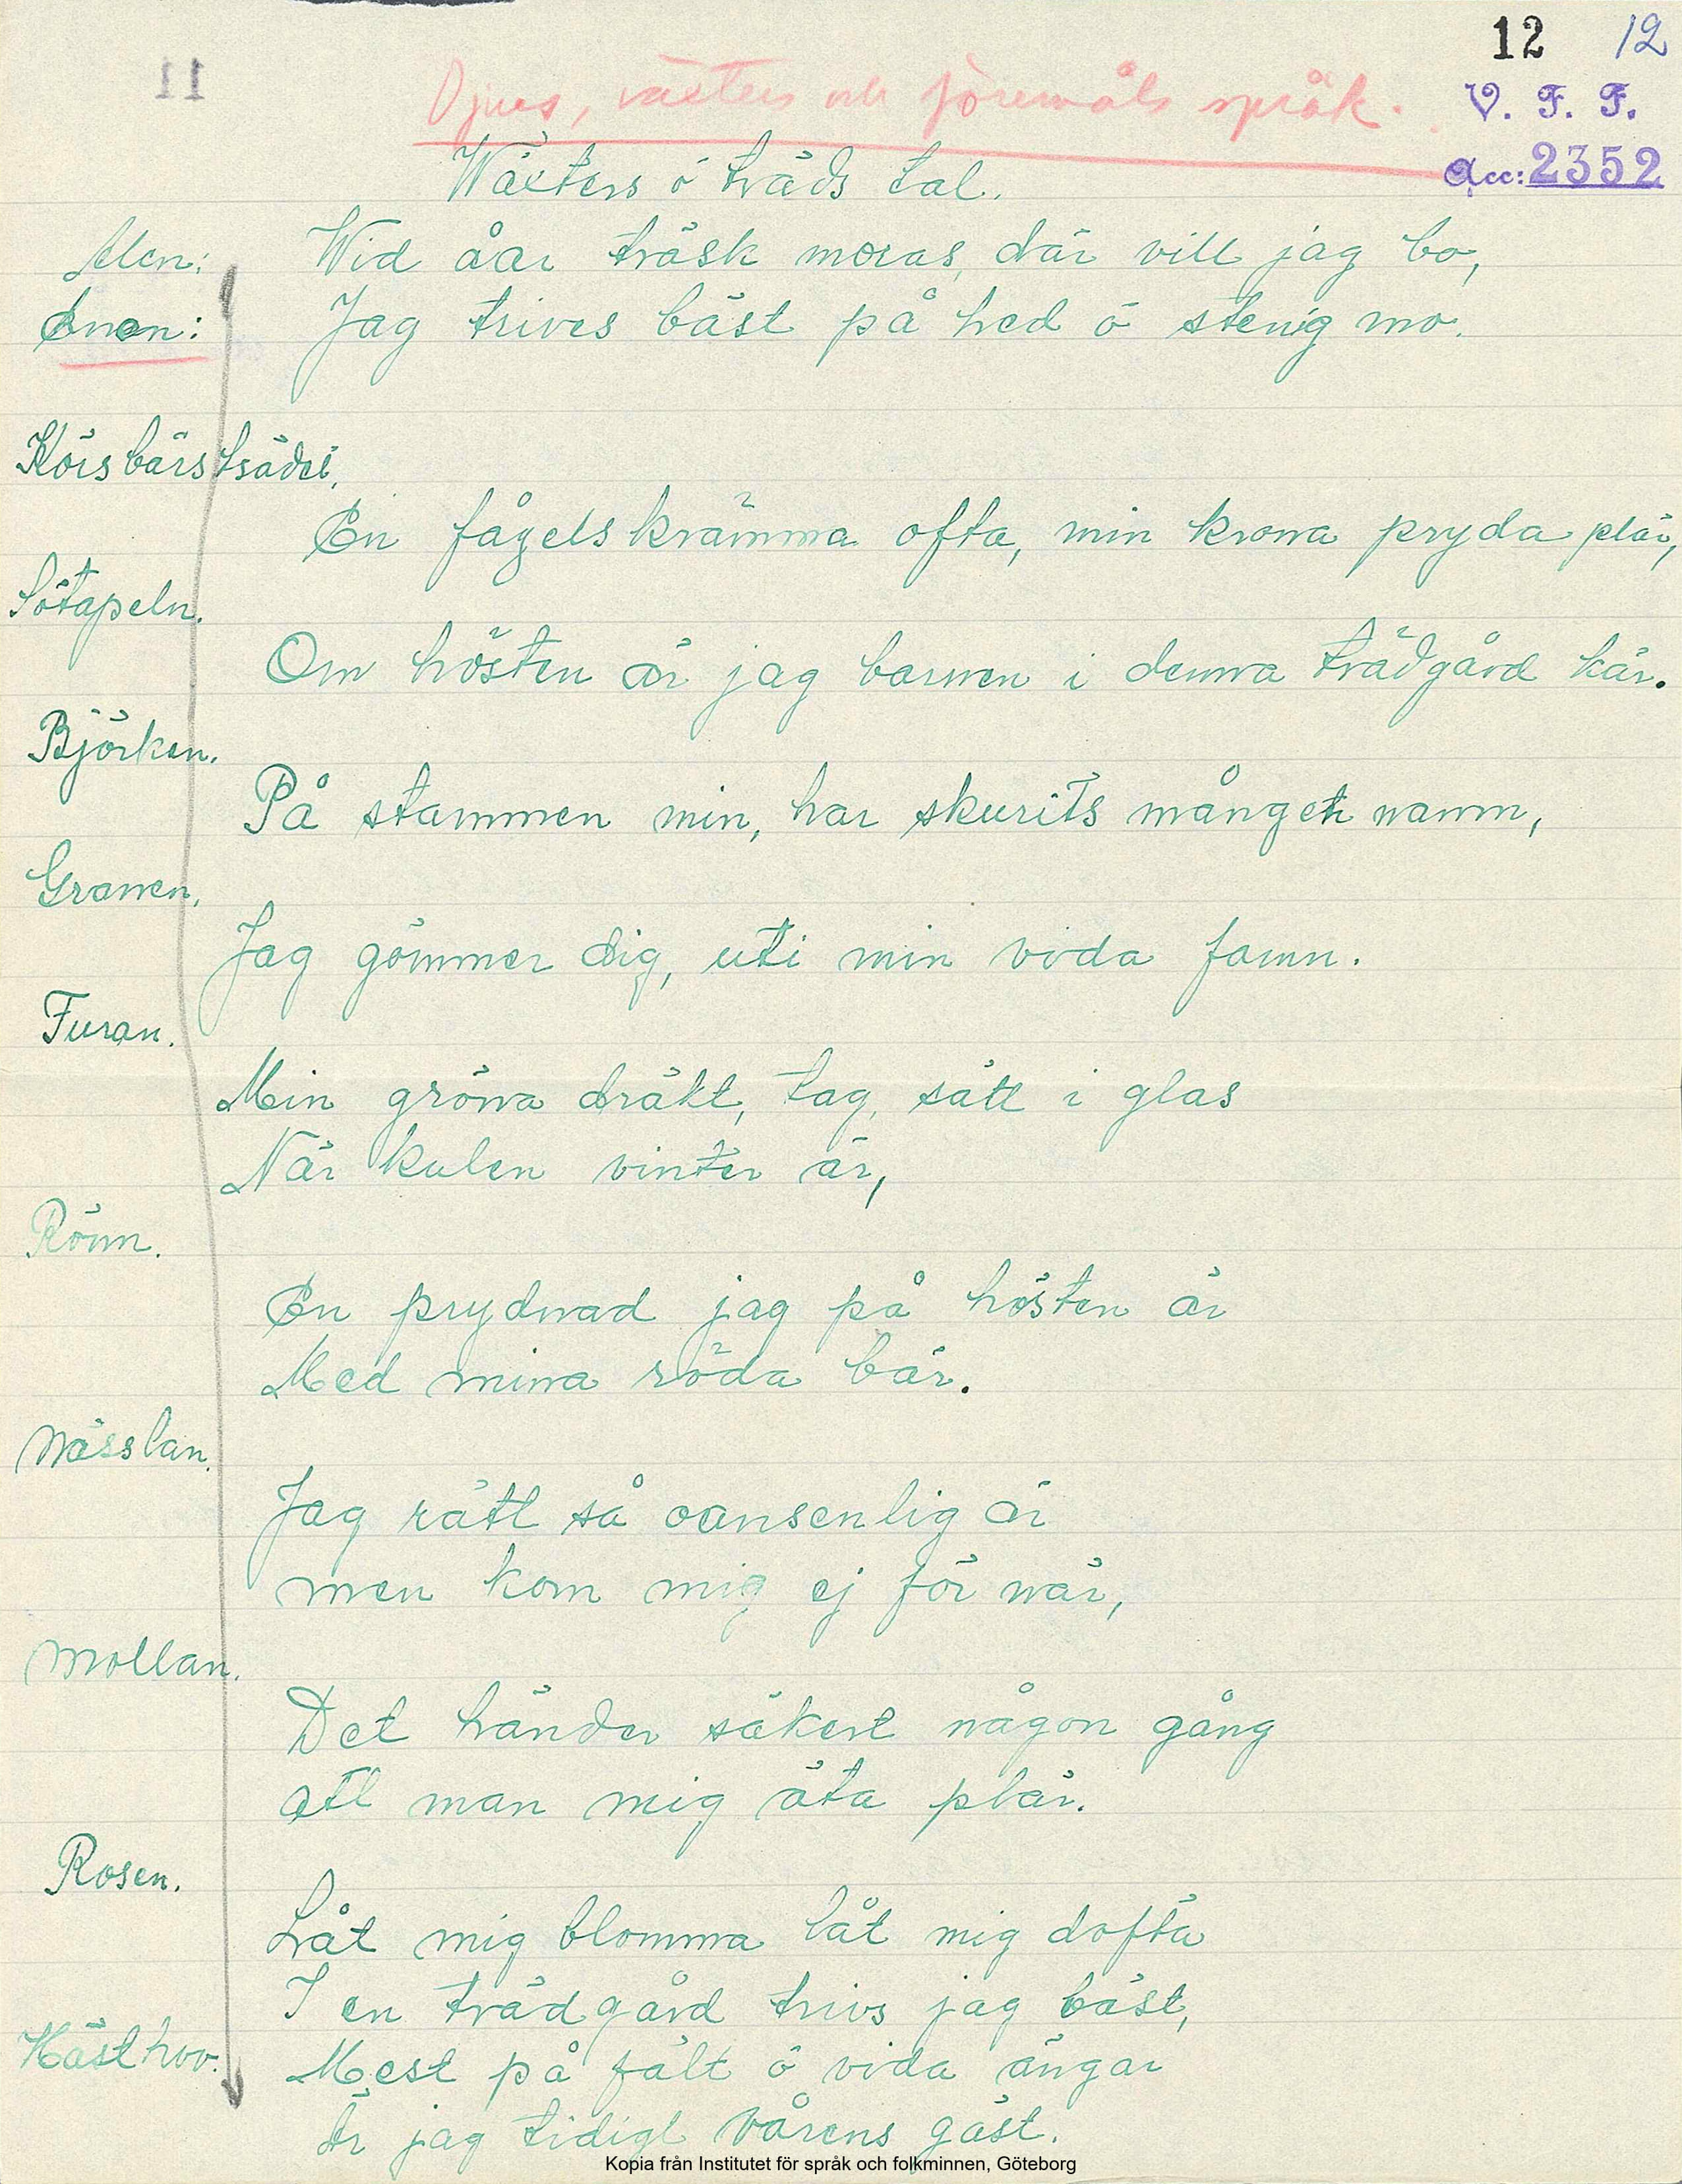 12 12
11
Djurs, växters och föremåls språk.
V. F. F.
Acc: 2352
Wäxters ö träds tal.
Alen: Wid åar träsk moras, där vill jag bo,
Enen: Jag trives bäst på hed ö stenig mo.
Körsbärsträdet.
En fågelskrämma ofta, min krona pryda plär,
Sötapeln.
Om hösten är jag barnen i denna trädgård kär.
Björken.
På stammen min, har skurits månget namn,
Granen.
Jag gömmer dig, uti min vida famn.
Furan.
Min gröna dräkt, tag, sätt i glas
När kulen vinter är,
Rönn.
En prydnad jag på hösten är
Med mina röda bär.
Nässlan.
Jag rätt så oansenlig är
men kom mig ej för när,
Mollan.
Det händer säkert någon gång
att man mig äta plär.
Rosen.
Låt mig blomma låt mig dofta
I en trädgård trivs jag bäst,
Hästhov. Mest på fält ö vida ängar
Är jag tidigt vårens gäst.
Kopia från Institutet för språk och folkminnen, Göteborg